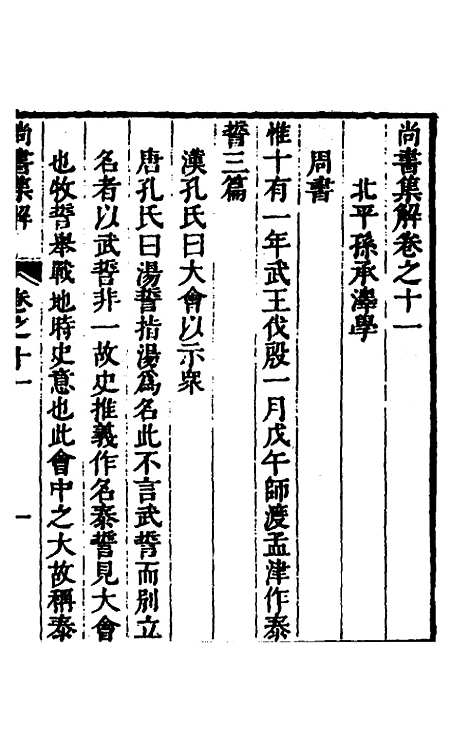 尚書集解卷之十一
北平孫承澤學
周書
惟十有一年武王伐殷一月戊午師渡孟津作泰
誓三篇
漢孔氏曰大會以示衆
唐孔氏曰湯誓指湯爲名此不言武誓而別立
名者以武誓非一故史推義作名泰誓見大會
也牧誓舉戰地時史意也此會中之大故稱泰
尚書集解
卷之十一
一